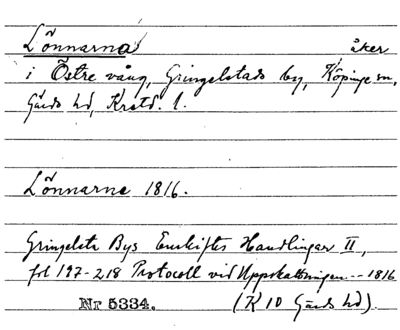 Lönnarna åker
i Östre vång, Gringelstads by, Köpinge sn,
Gärds hd, Krstd. l.
Lönnarne 1816.
Gringelsta Bys Enskiftes Handlingar II,
fol 197-218 Protocoll vid Uppskattningen -- 1816
Nr 5334. (K 10 Gärds hd).